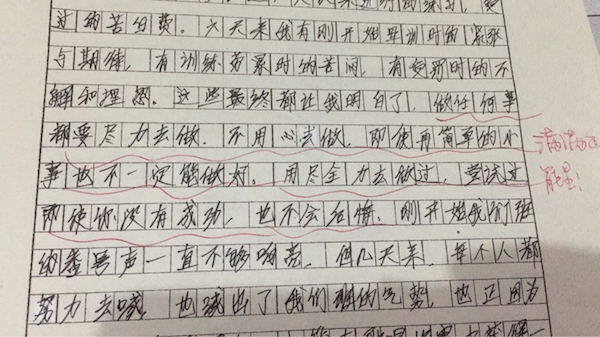 过的苦白费。六天来我有刚开始军训时的紧张
与期待，有训练劳累时的苦闷，有受罚时的不
解和埋怨。这些最终都让我明白了，做任何事
都要尽力去做，不用心去做，即使再简单的小
满满正
事也不一定能做好。用尽全力去做过，尝试过
能量！
即使你没有成功，也不会后悔。刚开始我们班
的番号声一直不够响亮，但几天来，每个人都
努力去喊，也喊出了我们班的气势，也正因为